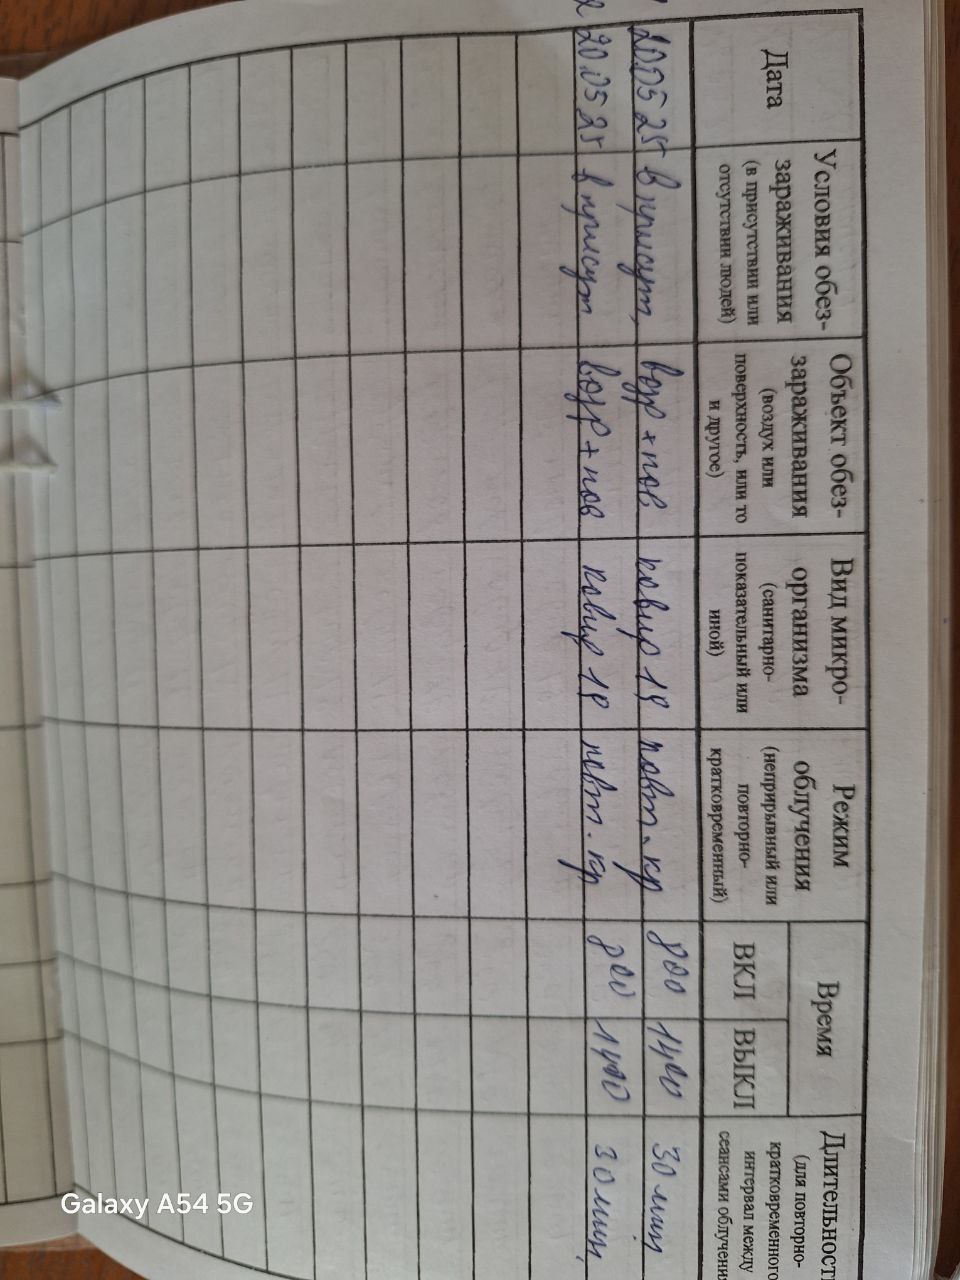 Дата
Условия обез-
зараживания
(в присутствии или
отсутствии людей)
Объект обез-
зараживания
(воздух или
поверхность, или то
и другое)
Вид микро-
организма
(санитарно-
показательный или
иной)
Режим
облучения
(неприрывный или
повторно-
кратковременный)
Время
ВКЛ
ВЫКЛ
Длительност
(для повторно-
кратковременного
интервал между
сеансами облучени
20.05 25 в присут, возр + пов ковид 19 повт. кр 800 1400 30 мин
20.05 25 в присут возр + пов ковид 19 повт. кр 800 1400 30 мин,
Galaxy A54 5G